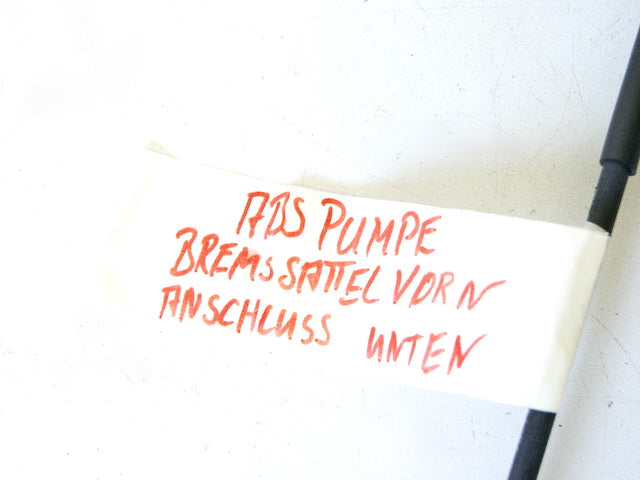 ABS PUMPE
BREMSSATTEL VORN
ANSCHLUSS UNTEN